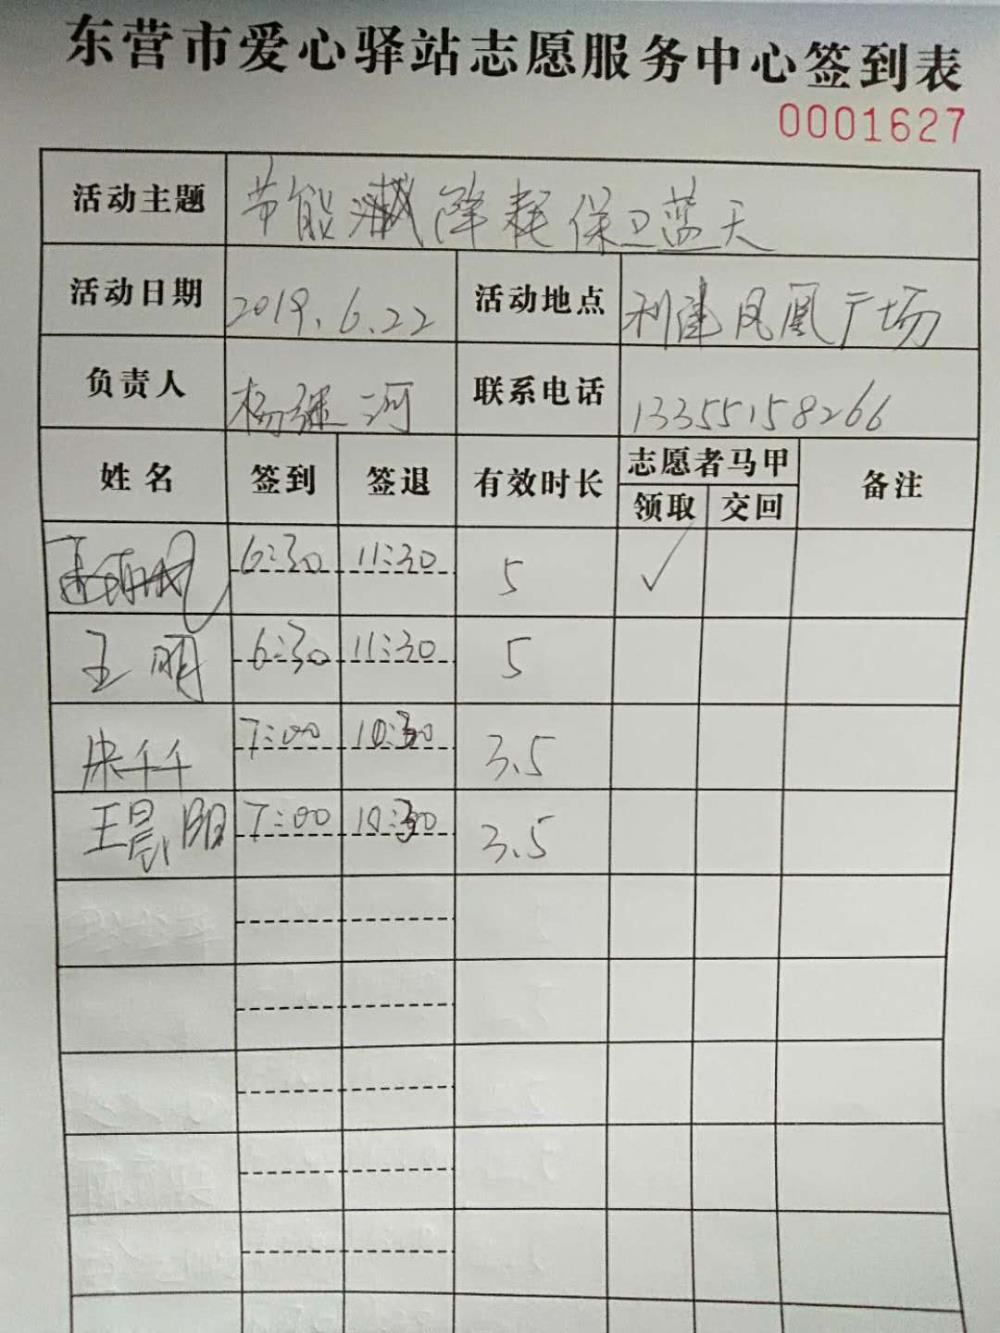 东营市爱心驿站志愿服务中心签到表
0001627
活动主题 节能 降耗保卫蓝天
活动日期 2019.6.22 活动地点 利津凤凰广场
负责人 杨继河 联系电话 13355158266
姓名 签到 签退 有效时长 志愿者马甲 备注
领取 交回
6:30 11:30 5 ✓
王明 6:30 11:30 5
千千 7:00 10:30 3.5
王晨阳 7:00 10:30 3.5